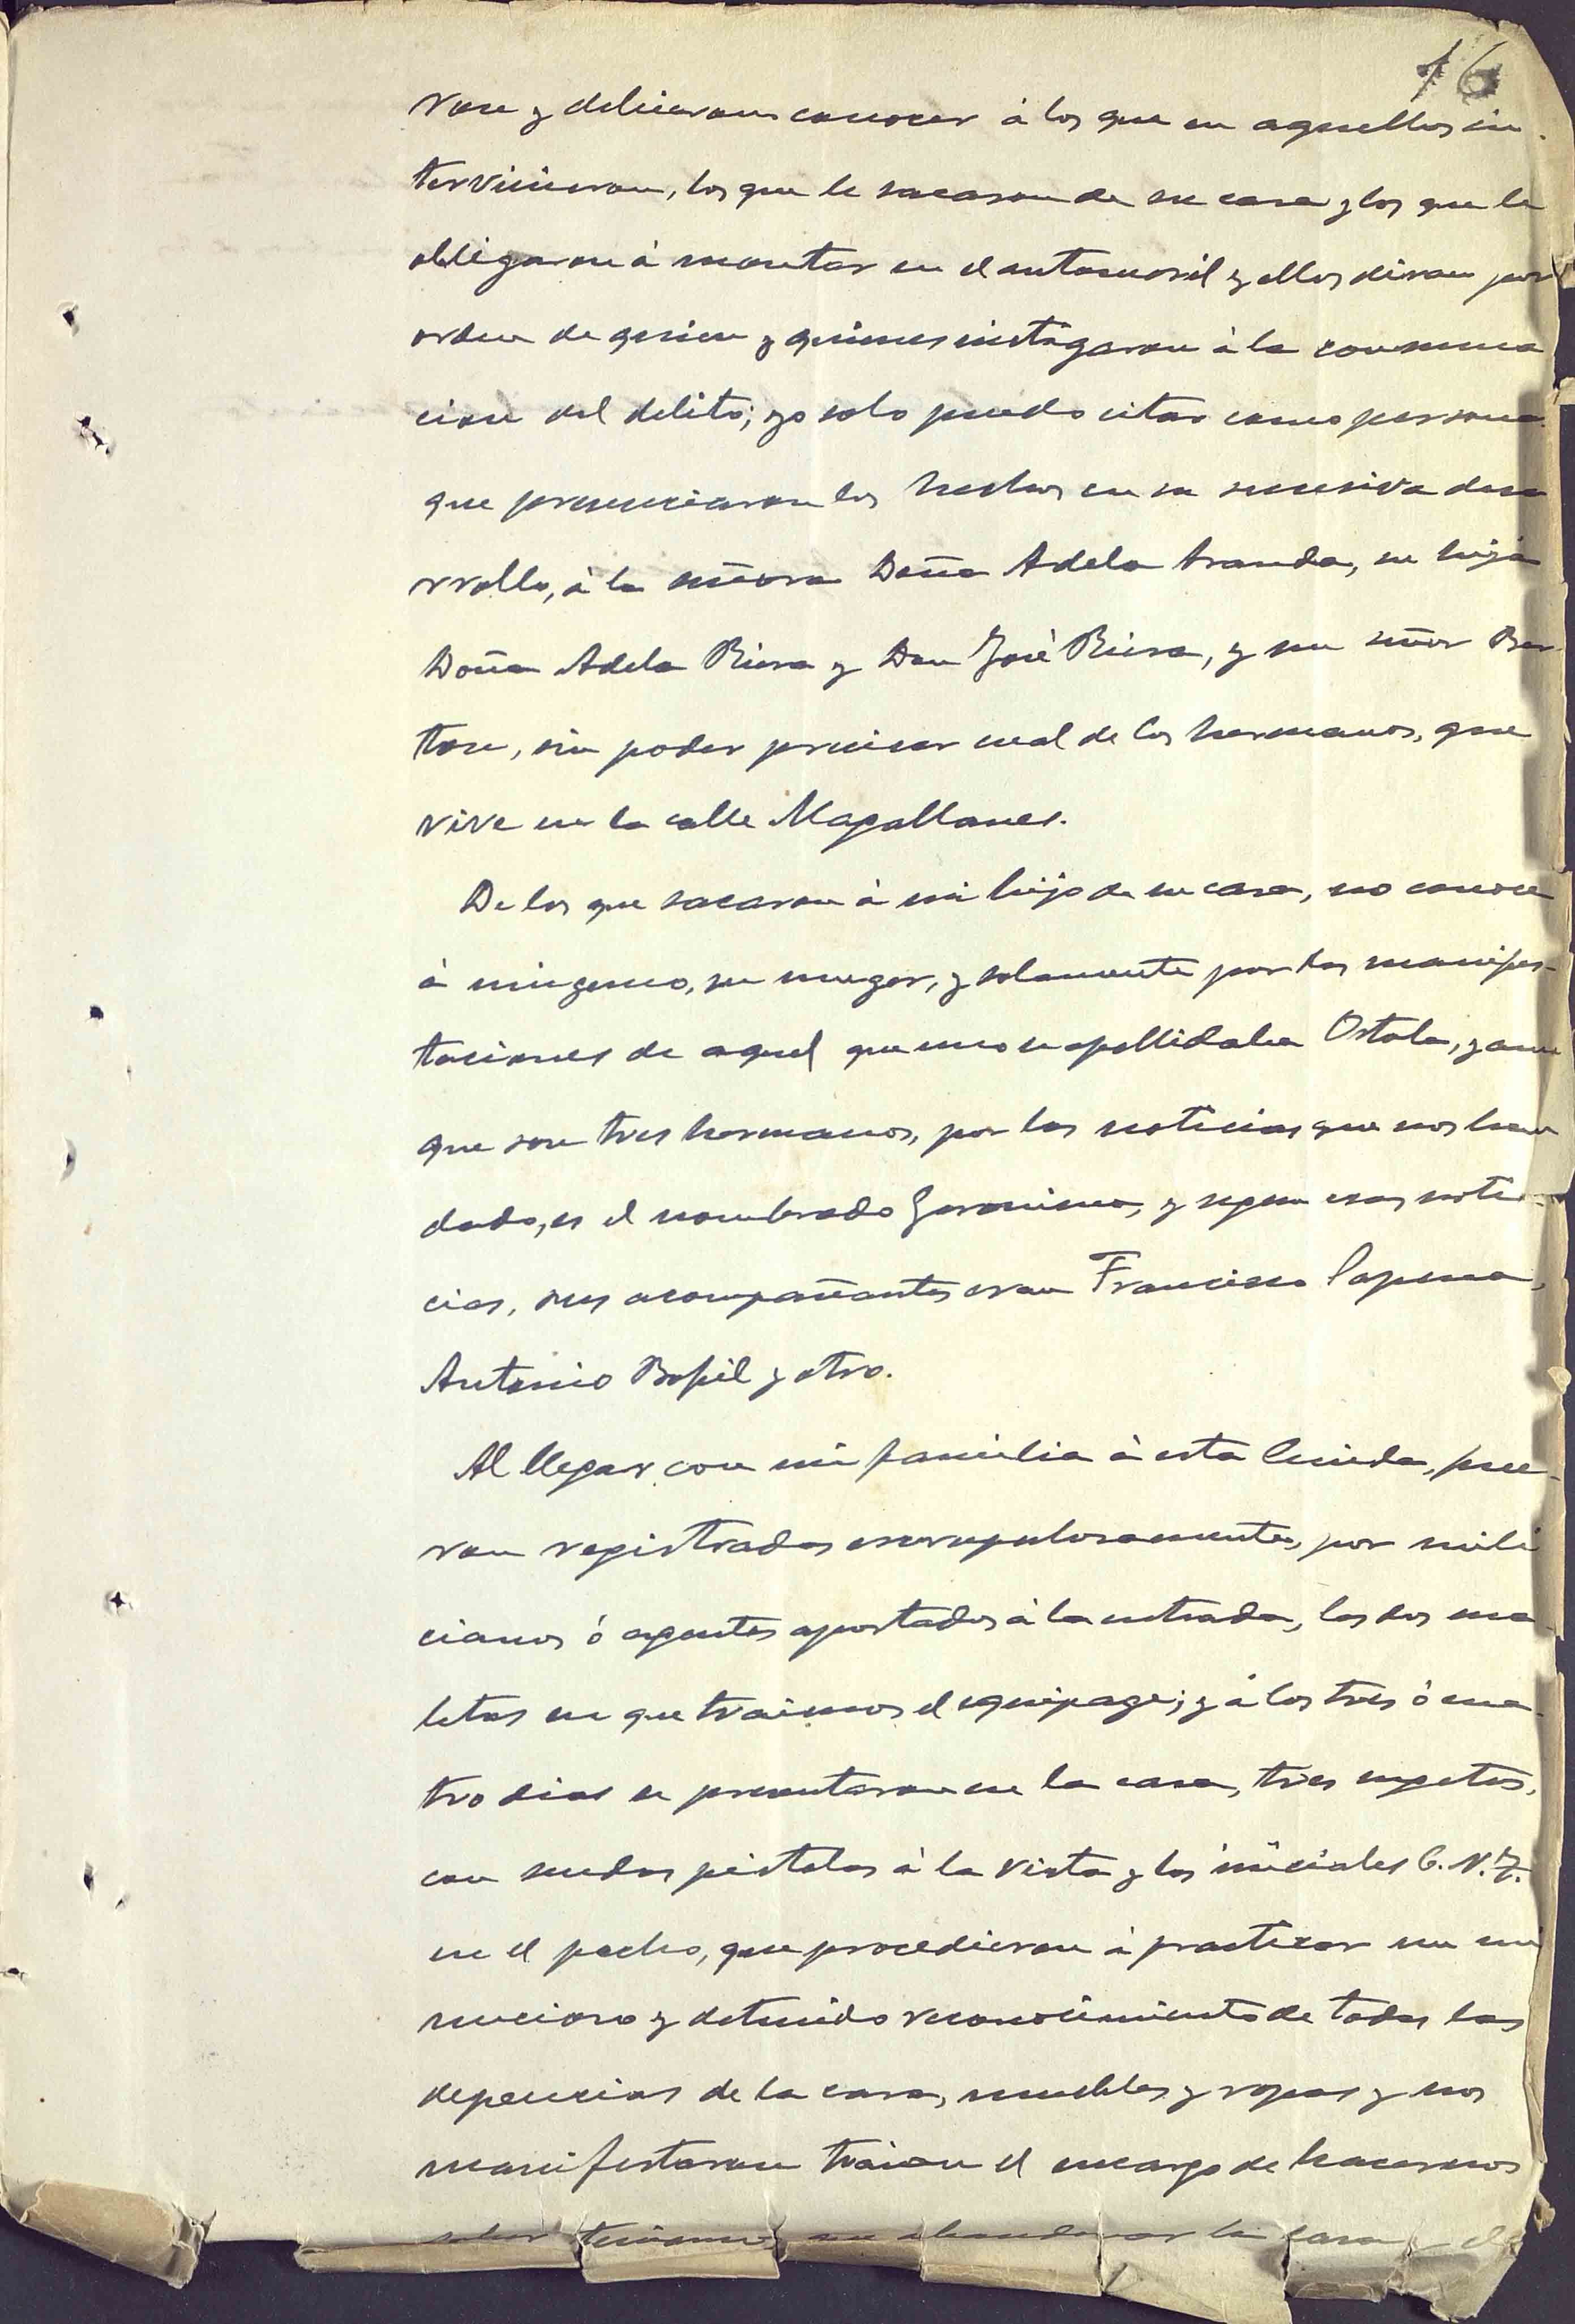 16
ron y debieron conocer á los que en aquellos in-
tervinieron, los que le sacaron de su casa y los que le
obligaron á montar en el automovil y ellos diran por
orden de quien y quienes instigaron á la consuma
cion del delito; yo solo puedo citar como persona
que presenciaron los hechos en su sucesiva desa
rrollo, á la señora Doña Adela Aranda, su hija
Doña Adela Riera y Don José Riera, y un señor Ber-
ton, sin poder precisar cual de los hermanos, que
vive en la calle Magallanes.
De los que sacaron á mi hijo de su casa, no conoce
á ninguno, su muger, y solamente por las manifes-
taciones de aquel que uno se apellidaba Ostola, y aun
que son tres hermanos, por las noticias que nos han
dado, es el nombrado Geronimo, y segun esas noti-
cias, sus acompañantes eran Francisco Lapena,
Antonio Bofil y otro.
Al llegar con mi familia á esta Ciuda, fue-
ron registradas escrupulosamente, por mili
cianos ó agentes apostados á la entrada, las dos ma-
letas en que traimos el equipage; y á los tres ó cua-
tro dias se presentaron en la casa, tres sugetos,
con sendas pistolas á la vista y las iniciales C.N.T.
en el pecho, que procedieron á practicar un mi
nucioso y detenido reconocimiento de todas las
depencias de la casa, muebles y ropas y nos
manifestaron traian el encargo de hacernos
saber teniamos que abandonar la casa y